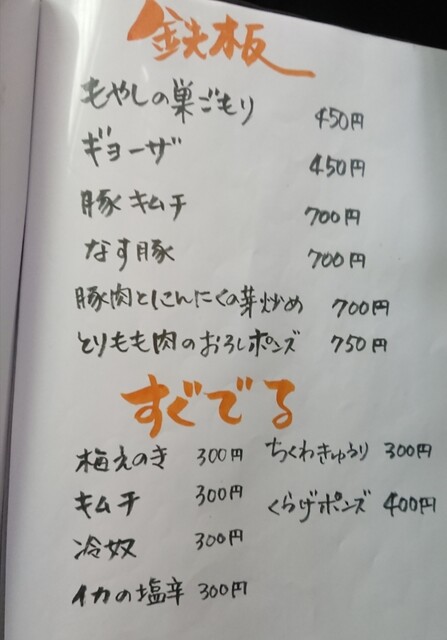 鉄板
もやしの巣ごもり 450円
ギョーザ 450円
豚キムチ 700円
なす豚 700円
豚肉とにんにくの芽炒め 700円
とりもも肉のおろしポンズ 750円
すぐでる
梅えのき 300円 ちくわきゅうり 300円
キムチ 300円 くらげポンズ 400円
冷奴 300円
イカの塩辛 300円